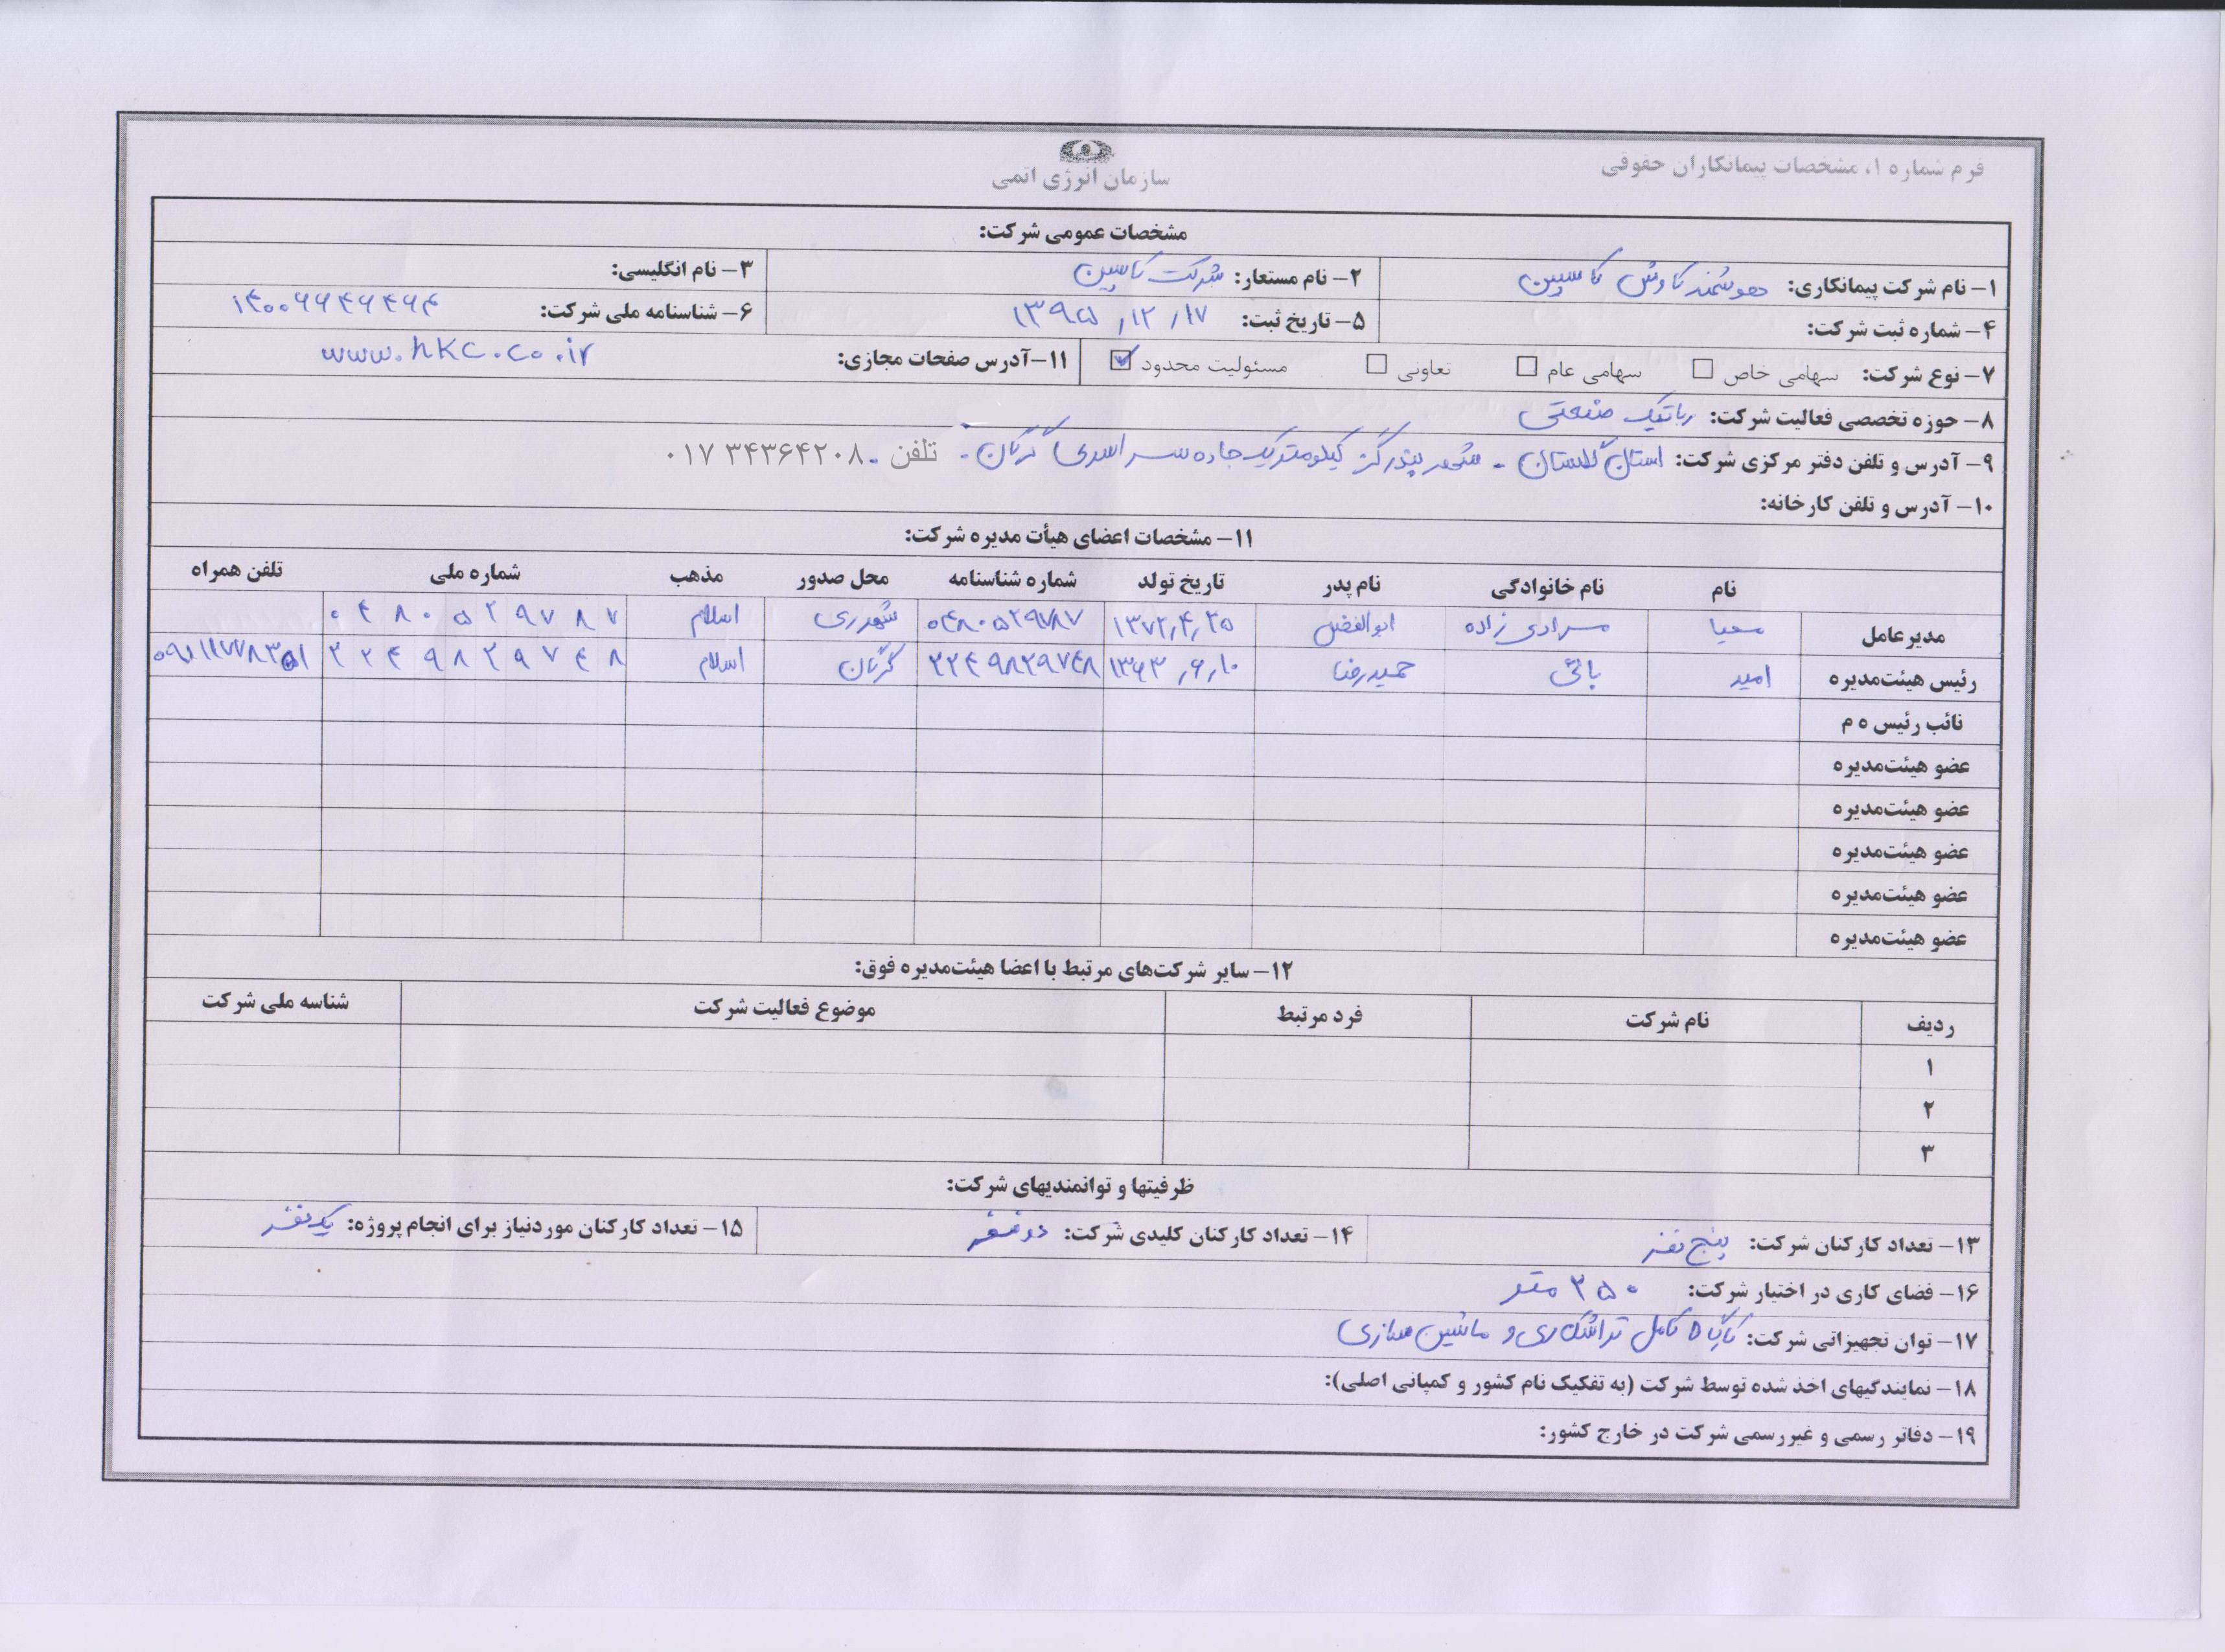 فرم شماره ۱، مشخصات پیمانکاران حقوقی
سازمان انرژی اتمی
مشخصات عمومی شرکت:
۱- نام شرکت پیمانکاری: هوشمند کاوش کاسپین
۲- نام مستعار: شرکت کاسپین
۳- نام انگلیسی:
۴- شماره ثبت شرکت:
۵- تاریخ ثبت: ۱۳۹۵/۱۲/۱۷
۶- شناسنامه ملی شرکت: ۱۴۰۰۶۶۴۶۴۶۴
۷- نوع شرکت: سهامی خاص ☐ سهامی عام ☐ تعاونی ☐ مسئولیت محدود ☑
۱۱-آدرس صفحات مجازی: www.hkc.co.ir
۸- حوزه تخصصی فعالیت شرکت: رباتیک صنعتی
۹- آدرس و تلفن دفتر مرکزی شرکت: استان گلستان - شهر بندرگز کیلومتر یک جاده سر اسری گرگان - تلفن - ۰۱۷ ۳۴۳۶۴۲۰۸
۱۰- آدرس و تلفن کارخانه:
۱۱- مشخصات اعضای هیأت مدیره شرکت:
نام نام خانوادگی نام پدر تاریخ تولد شماره شناسنامه محل صدور مذهب شماره ملی تلفن همراه
مدیرعامل ابوالفضل ۱۳۷۲/۴/۲۵ ۰۴۸۰۵۲۹۷۸۷ شهرری اسلام ۰۴۸۰۵۲۹۷۸۷
رئیس هیئت‌مدیره امید بائی حمیدرضا ۱۳۶۳/۶/۱۰ ۲۲۴۹۸۲۹۷۴۸ گرگان اسلام ۲۲۴۹۸۲۹۷۴۸
نائب رئیس ه م
عضو هیئت‌مدیره
عضو هیئت‌مدیره
عضو هیئت‌مدیره
عضو هیئت‌مدیره
عضو هیئت‌مدیره
۱۲- سایر شرکت‌های مرتبط با اعضا هیئت‌مدیره فوق:
ردیف نام شرکت فرد مرتبط موضوع فعالیت شرکت شناسه ملی شرکت
۱
۲
۳
ظرفیتها و توانمندیهای شرکت:
۱۳- تعداد کارکنان شرکت: پنج نفر
۱۴- تعداد کارکنان کلیدی شرکت: دو نفر
۱۵- تعداد کارکنان موردنیاز برای انجام پروژه: یک نفر
۱۶- فضای کاری در اختیار شرکت: ۲۵۰ متر
۱۷- توان تجهیزاتی شرکت: کارگاه کامل تراشکاری و ماشین سازی
۱۸- نمایندگیهای اخذ شده توسط شرکت (به تفکیک نام کشور و کمپانی اصلی):
۱۹- دفاتر رسمی و غیررسمی شرکت در خارج کشور: